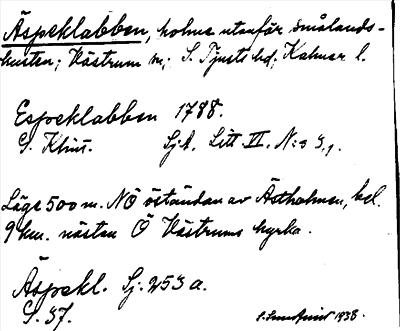 Äspeklabben, holme utanför smålands-
kusten; Västrum sn; S. Tjusts hd; Kalmar l.
Espeklabben 1788.
G. Klint. Sj.k. Litt. VI. N:o 3,1.
Läge 500 m. NÖ öständan av Ästholmen, bel.
9 km. nästan Ö Västrums kyrka.
Äspekl. Sj. 253 a.
S. 37. 1938.